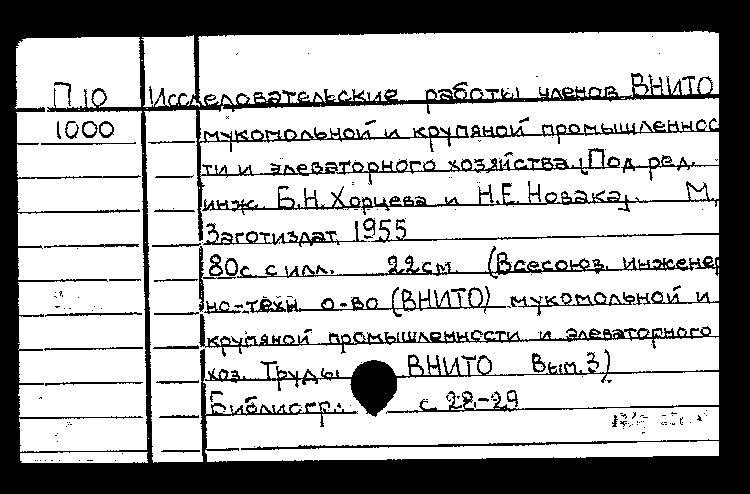 П.10 Исследовательские работы членов ВНИТО
1000 мукомольной и крупяной промышленнос
ти и элеваторного хозяйства. (Под ред.
инж. Б.Н. Хорцева и Н.Е. Новака). М.,
Заготиздат, 1955
80с. с илл. 22см. (Всесоюз. инженер
но-техн. о-во (ВНИТО) мукомольной и
крупяной промышленности и элеваторного
хоз. Труды ВНИТО Вып. 3)
Библиогр.: с 28-29